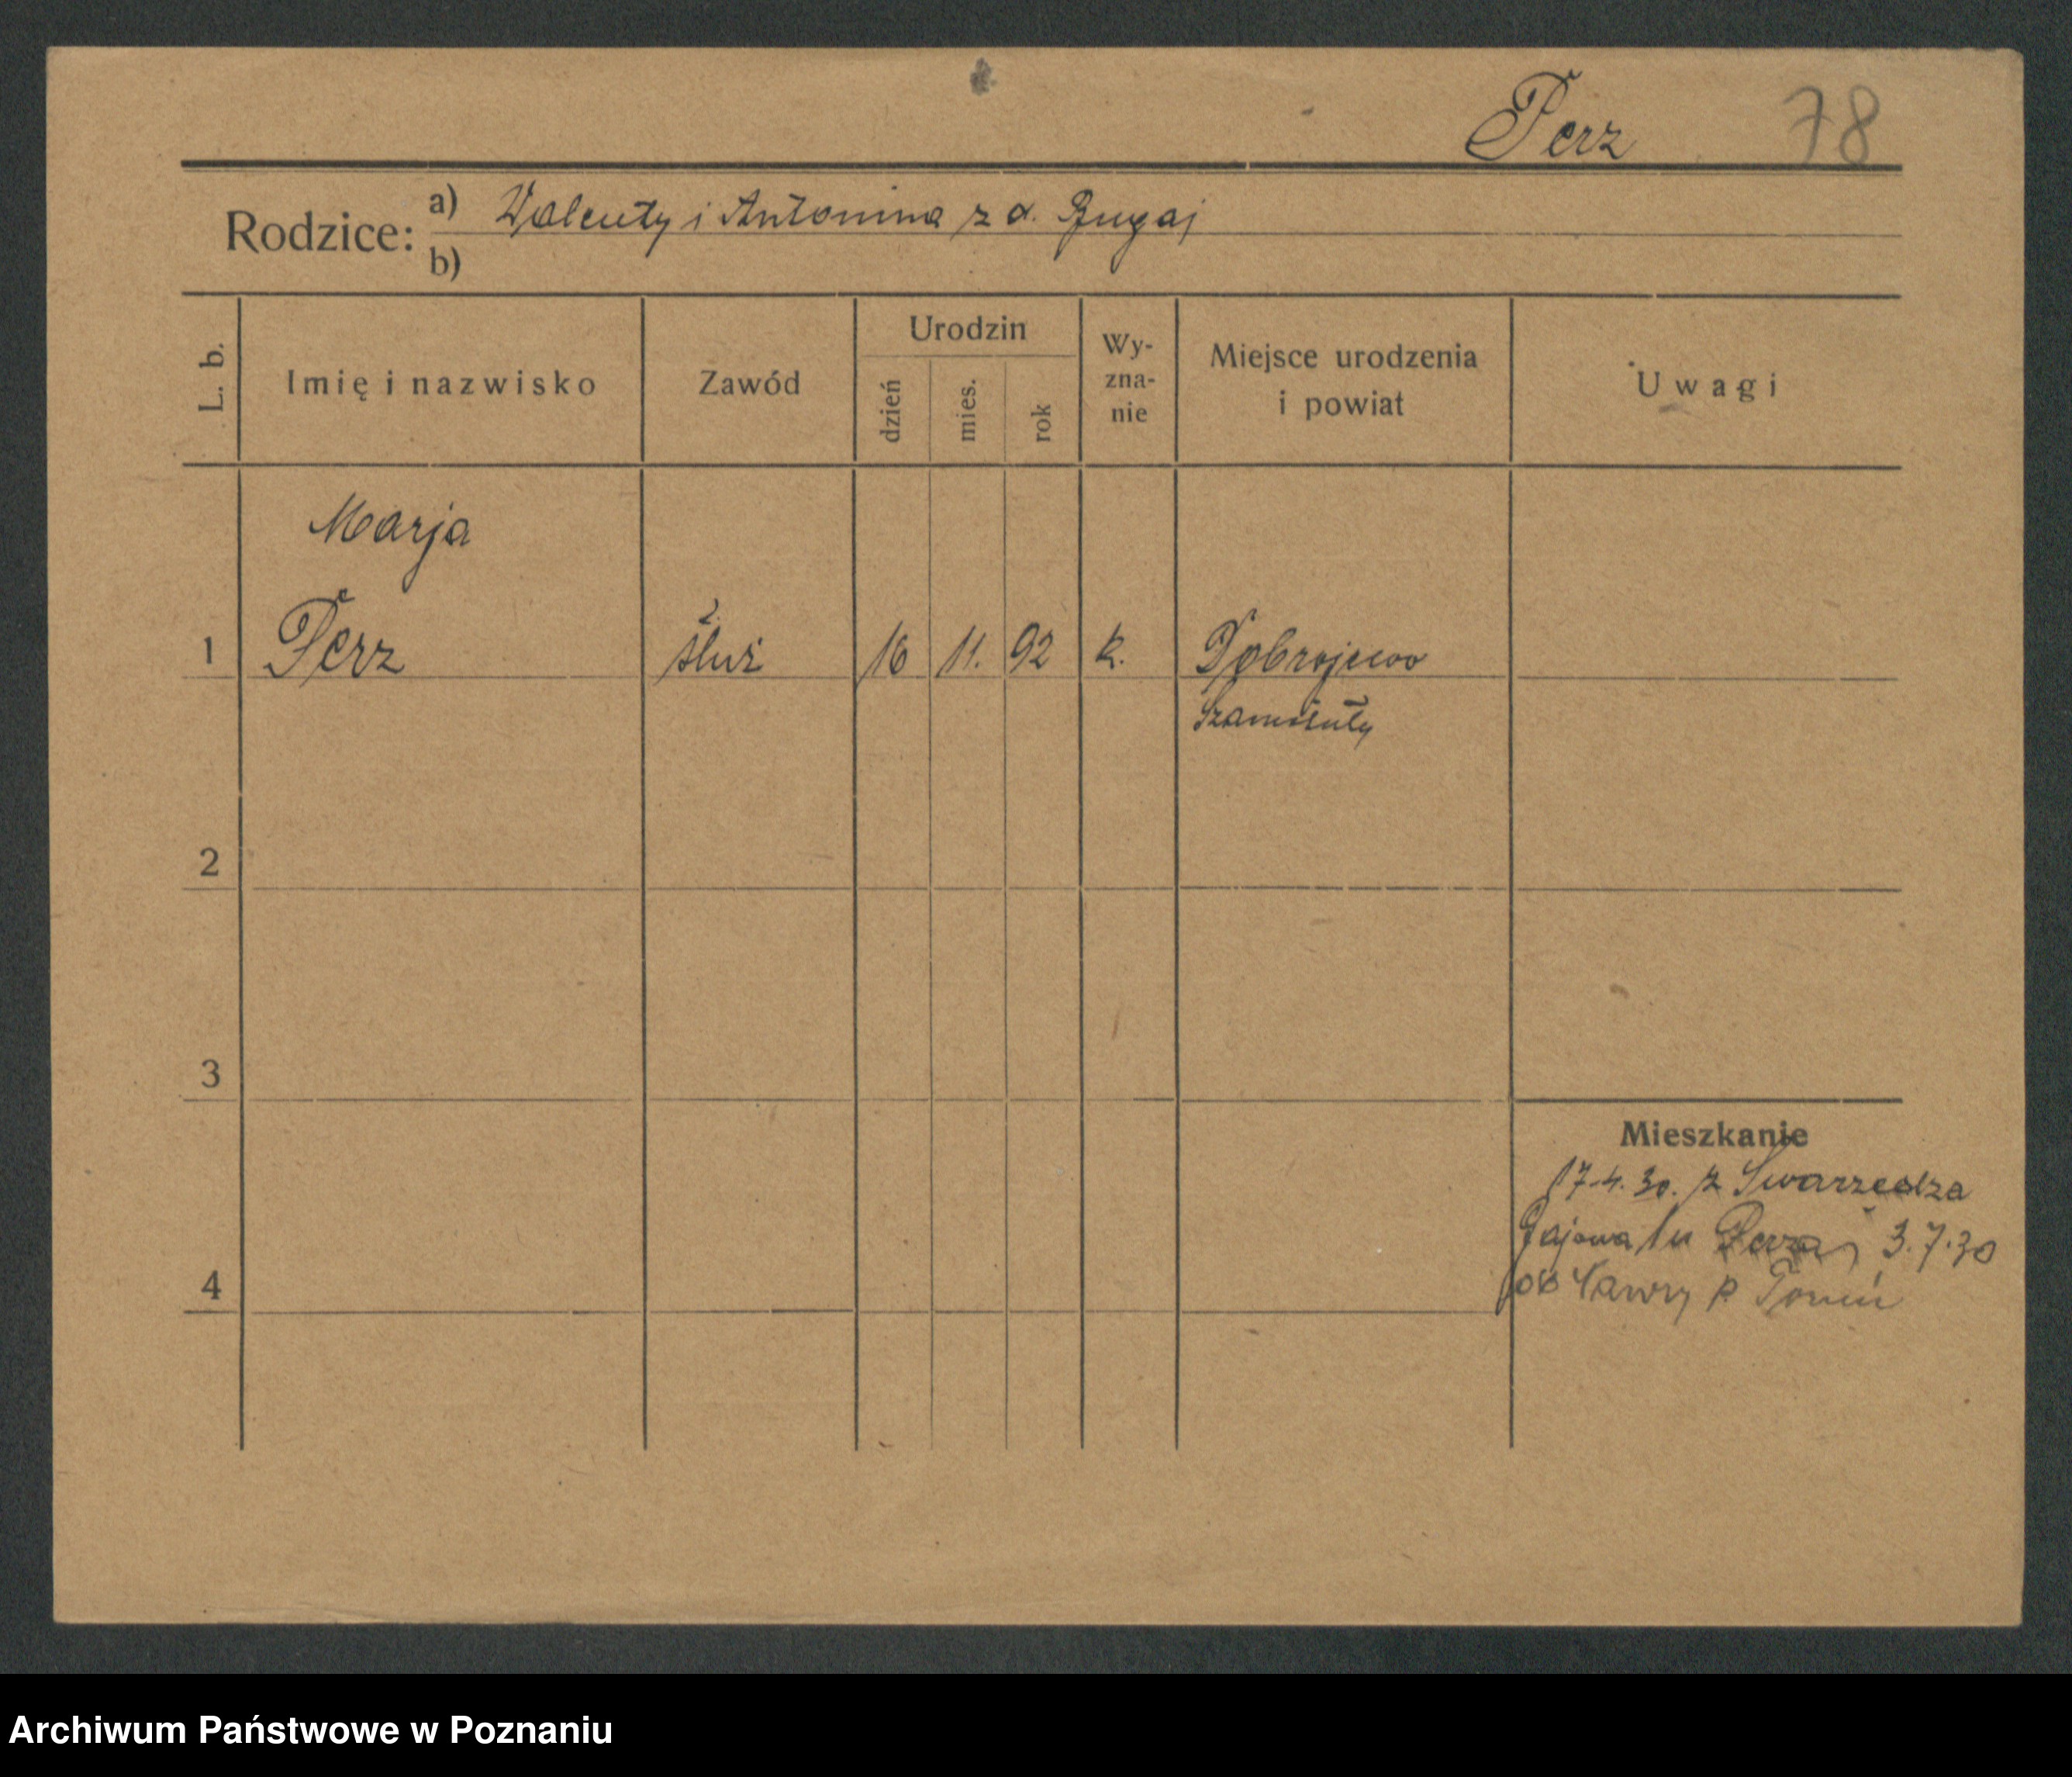 Perz 78
Rodzice: a) Walenty i Antonina z d.
b)
L. b. Imię i nazwisko Zawód Urodzin dzień mies. rok Wy-zna-nie Miejsce urodzenia i powiat Uwagi
Marja
1 Perz służ 16 11. 92 k. Dobrojewo
Szamotuły
2
3
Mieszkanie
17.4.30. z Swarzędza
Gajowa 3.7.30
4
Archiwum Państwowe w Poznaniu